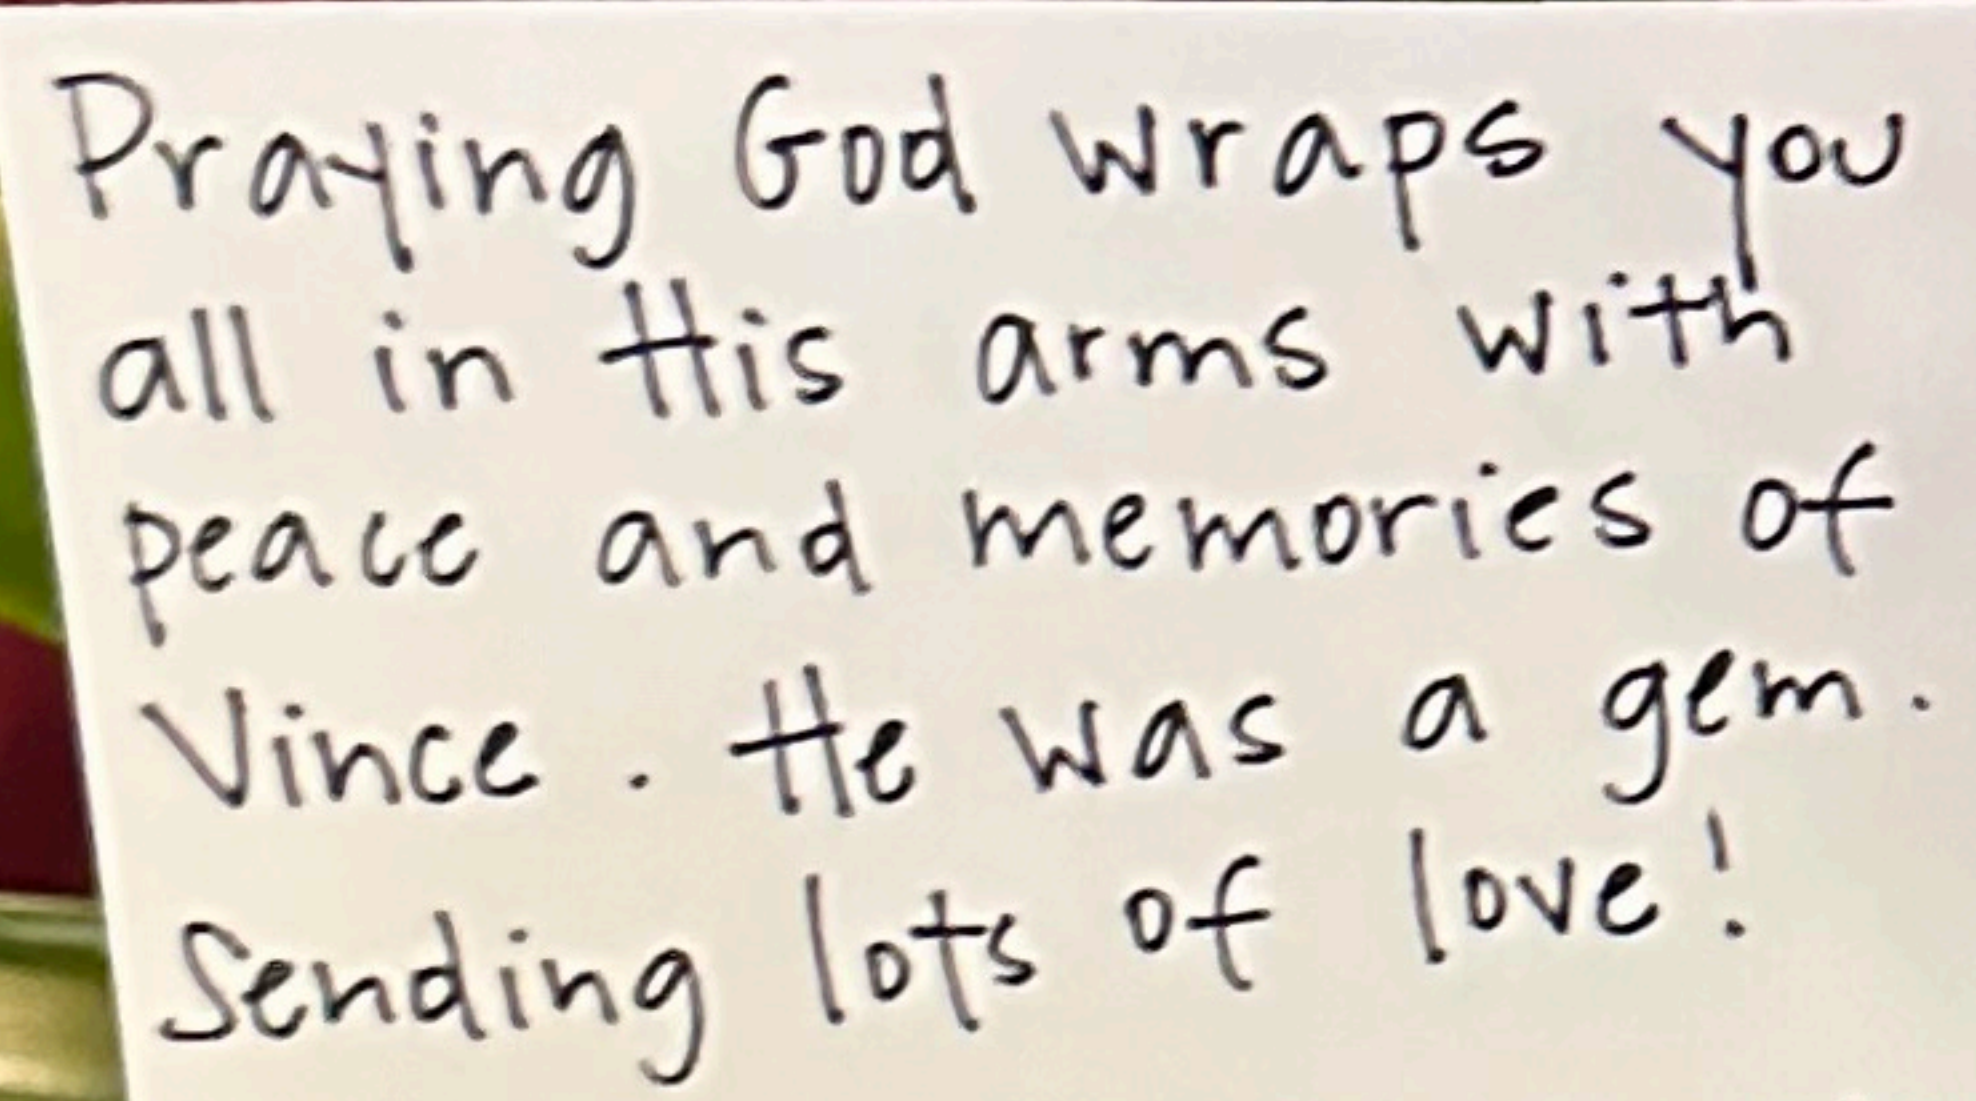 Praying God wraps you
all in His arms with
peace and memories of
Vince. He was a gem.
Sending lots of love!